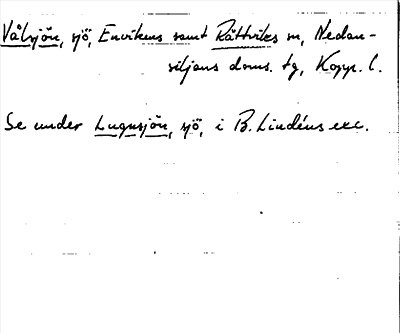 Välsjön, sjö, Envikens samt Rättviks sn, Nedan-
siljans doms. tg, Kopp. l.
Se under Lugnsjön, sjö, i B. Lindéns exc.